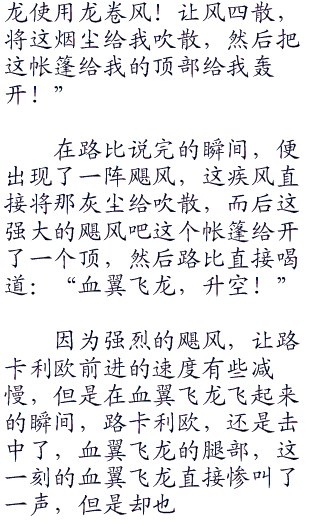 龙使用龙卷风！让风四散，
将这烟尘给我吹散，然后把
这帐篷给我的顶部给我轰
开！”
在路比说完的瞬间，便
出现了一阵飓风，这疾风直
接将那灰尘给吹散，而后这
强大的飓风吧这个帐篷给开
了一个顶，然后路比直接喝
道：“血翼飞龙，升空！”
因为强烈的飓风，让路
卡利欧前进的速度有些减
慢，但是在血翼飞龙飞起来
的瞬间，路卡利欧，还是击
中了，血翼飞龙的腿部，这
一刻的血翼飞龙直接惨叫了
一声，但是却也